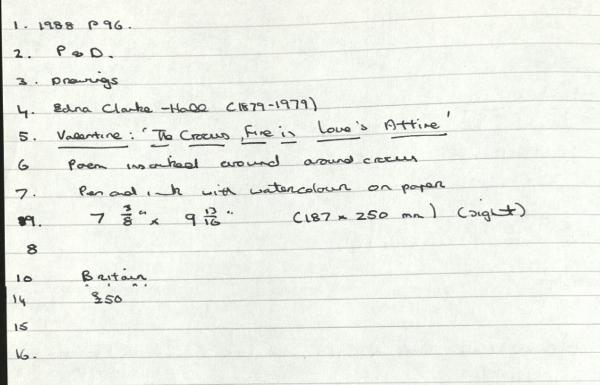 1. 1988 P 96.
2. P & D.
3. Drawings
4. Edna Clarke-Hall (1879-1979)
5. Valentine: 'The Crocus Fire is Love's Attire'
6 Poem worked around around crocus
7. Pen and ink with watercolour on paper
9. 7 3/8" x 9 13/16" (187 x 250 mm) (sight)
8
10 Britain
14 £50
15
16.